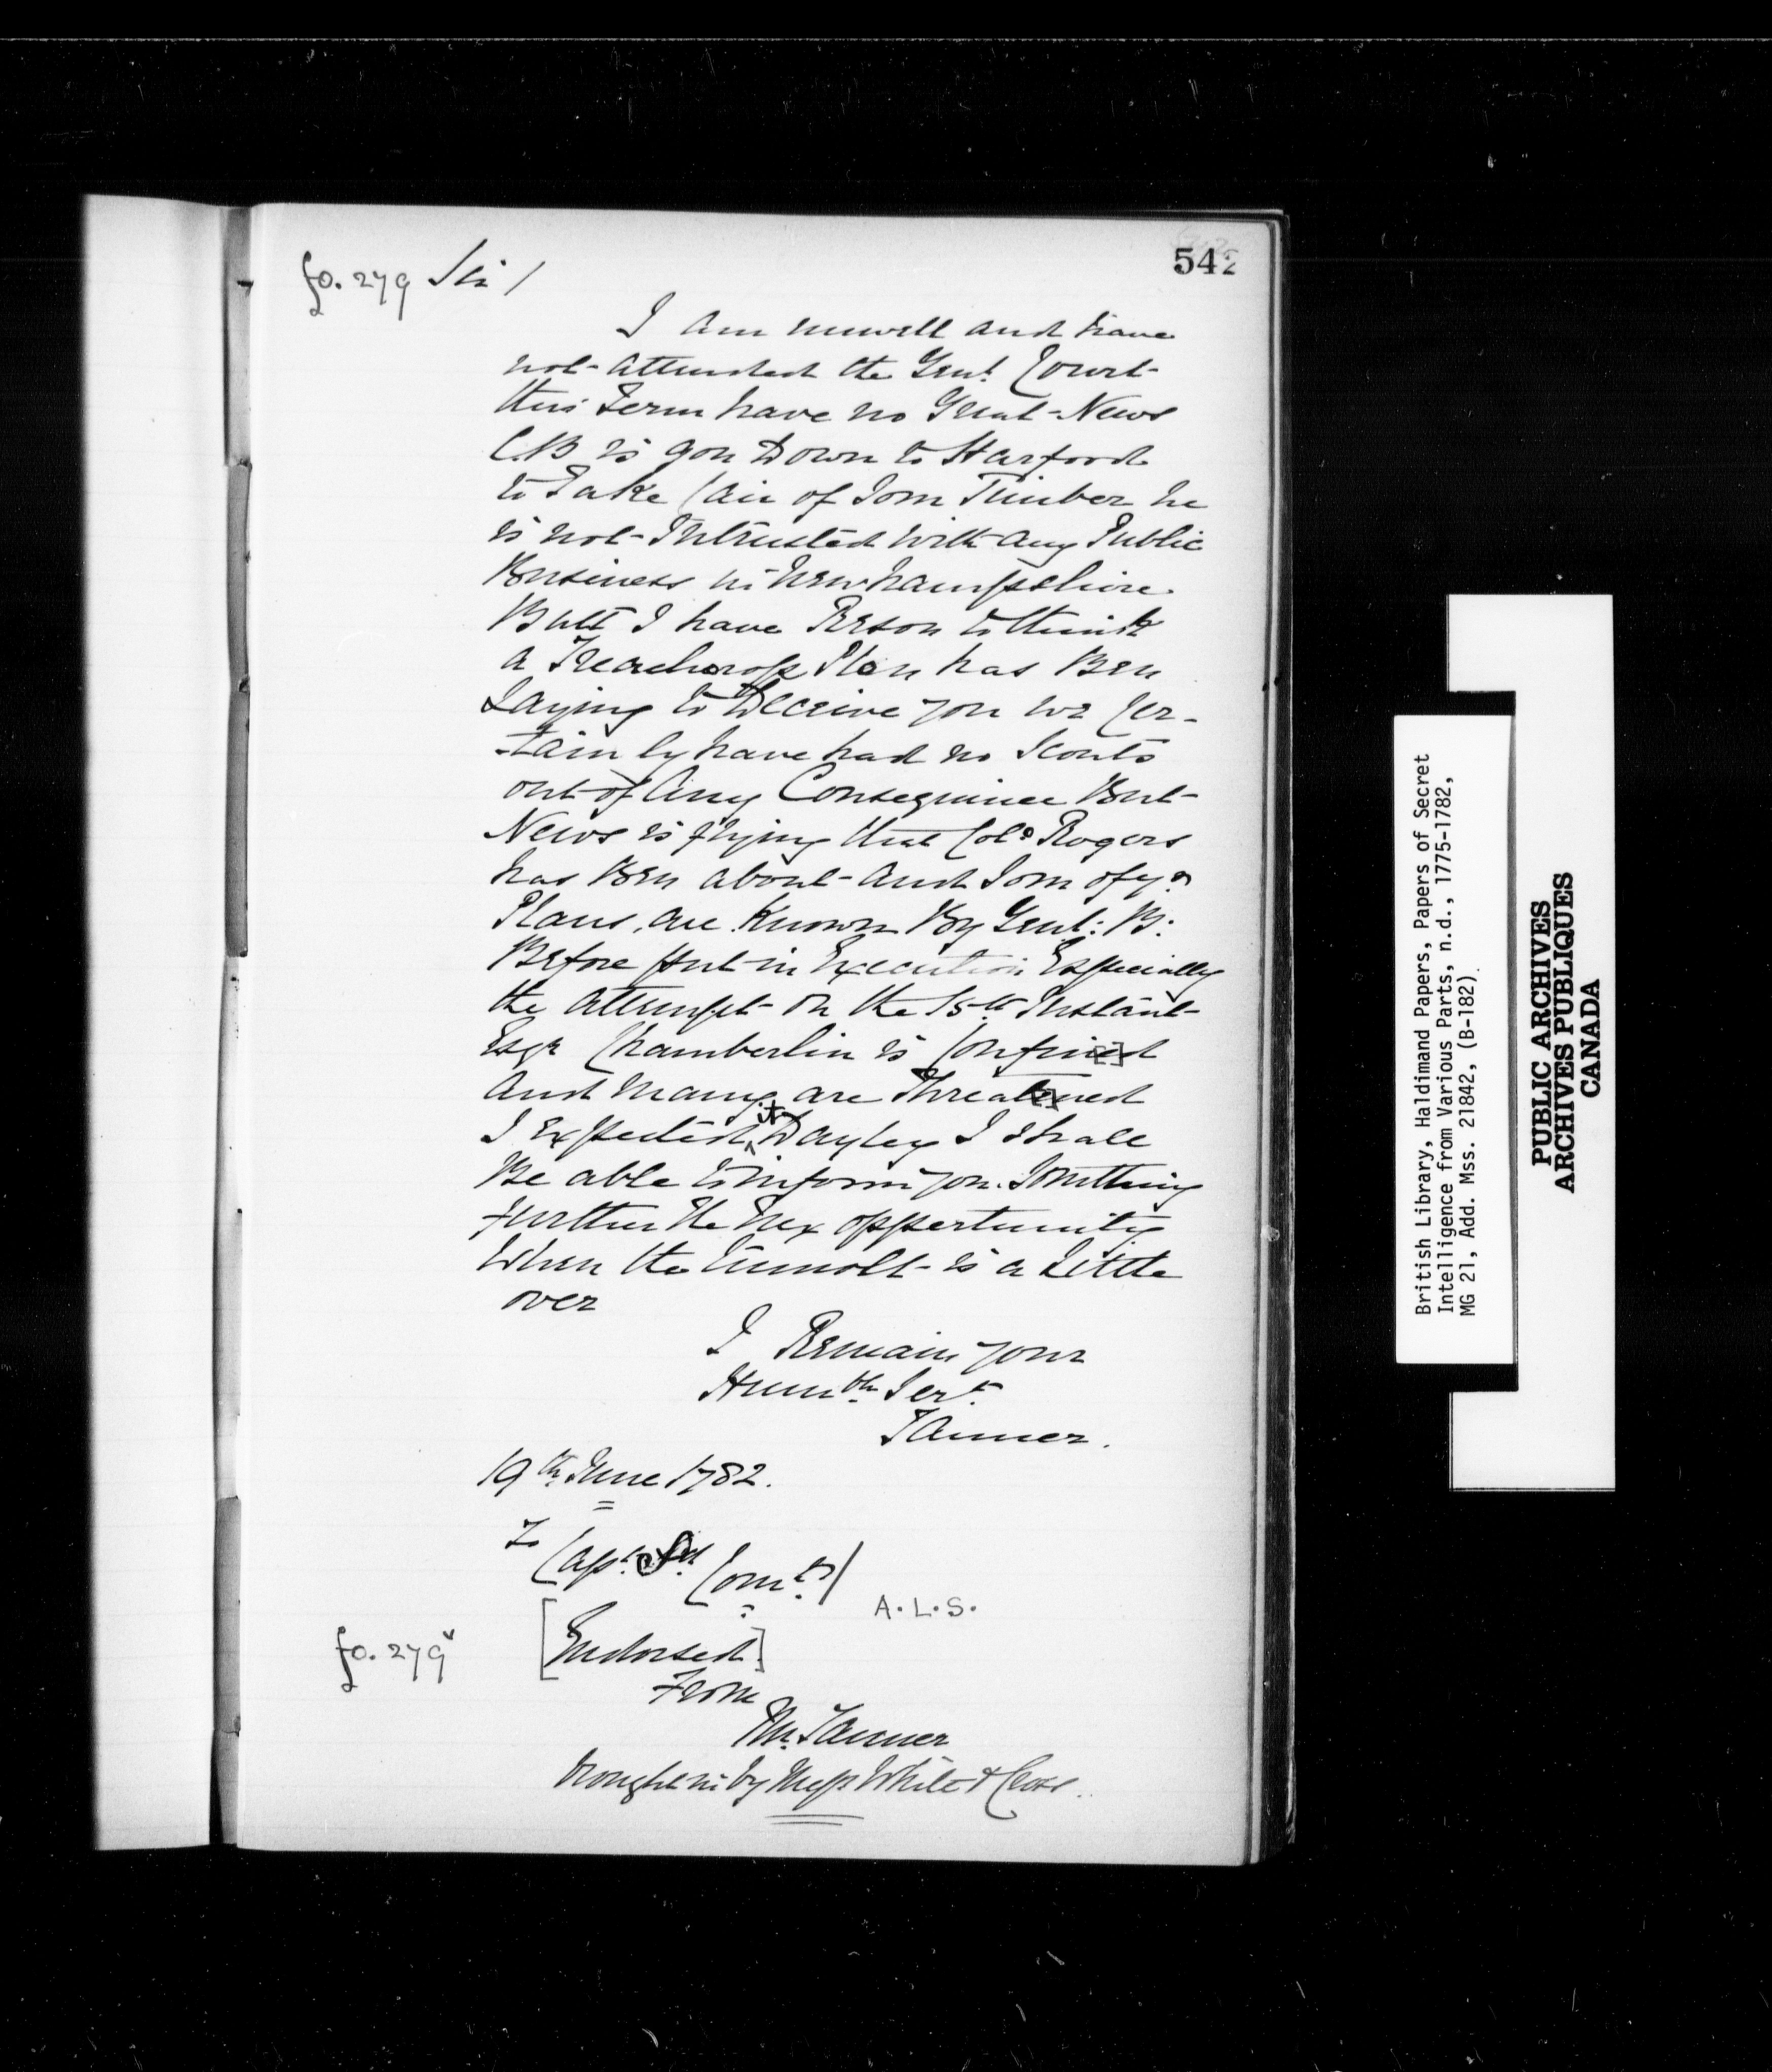 542
fo. 279 Sir /
I am unwell and have
not attended the Genl. Court
this Term have no Great News
C.B is gon Down to Harford
to Take Cair of Som Timber he
is not Intrusted with any Public
Business in Newhampshire
Butt I have Reson to think
a Treacheross Plan has Ben
Laying to Deceive you we Cer-
-tainly have had no Scouts
out of Any Consequince But
News is flying that Colo Rogers
has Ben about and Som of yr
Plans are Known By Genl: B:
Before put in Execution Especially
the attempt on the 15th Instant
Esqr Chamberlin is Confined
and many are Threatened
I Expected it Dayley I shall
Be able to inform you Somthing
further the Nex oppertunity
When the tumolt is a Little
over
I Remain your
Humble Servt.
Tanner.
19th June 1782.
To
Capt. Comt. /
A.L.S.
fo. 279v
[Endorsed]
From
Mr. Tanner
brought in by Messrs White & Close.
British Library, Haldimand Papers, Papers of Secret
Intelligence from Various Parts, n.d., 1775-1782,
MG 21, Add. Mss. 21842, (B-182).
PUBLIC ARCHIVES
ARCHIVES PUBLIQUES
CANADA